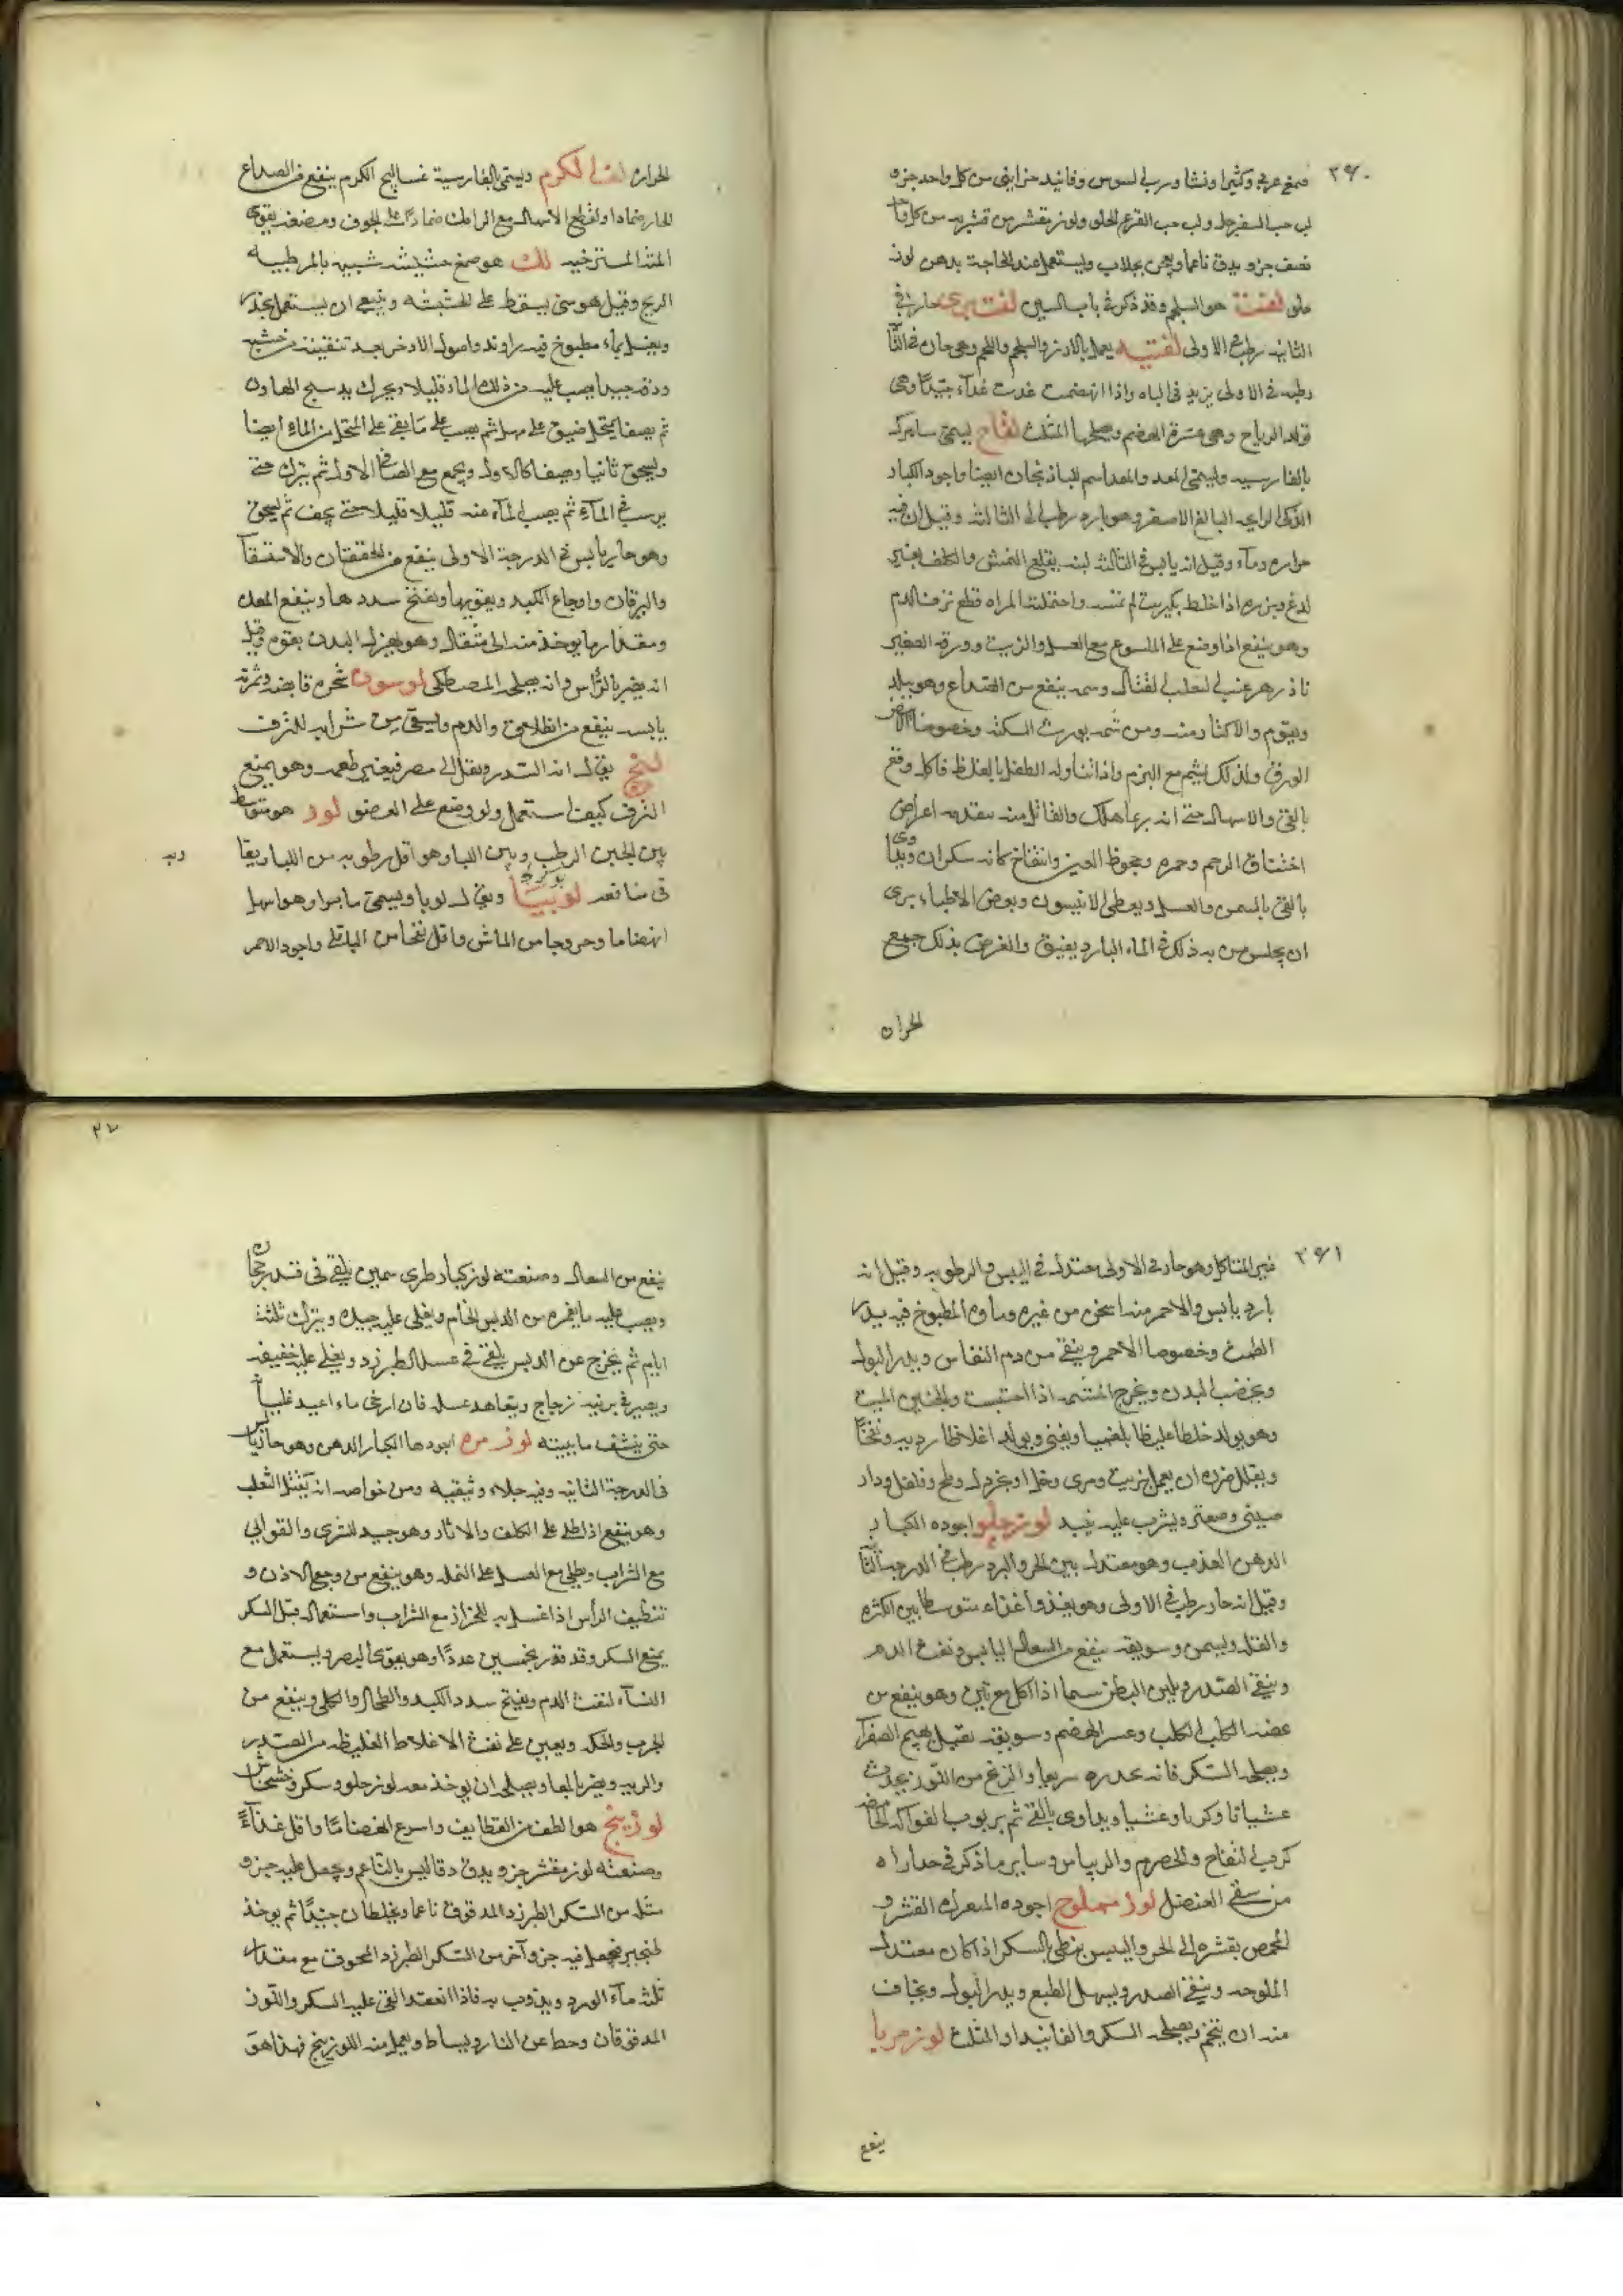 ٣٦٠
صمغ عربي وكثيرا ونشا ورب السوس وفانيد خزايني من كل واحد جزو
لب حب السفرجل ولب حب القرع الحلو ولوز مقشر من قشريه من كل واحد
نصف جزو يدق ناعما ويعجن بجلاب ويستعمل عند الحاجة بدهن لوز
حلو لفت هو السلجم وقد ذكر في باب السين لفت بري حار في
الثانيه رطب في الاولى لفتيه يعمل بالارز والسلجم واللحم وهي حارة في الثانيه
رطبه في الاولى يزيد في الباه واذا انهضمت غذت غذآء جيدا وهي
تولد الرياح وهي عسرة الهضم ويصلحها المثلث لفاح يسمى سابيزك
بالفارسيه ويسمى المغد والمغد اسم للباذنجان ايضا واجوده الكبار
الذكي الرايحه البالغ الاصفر وهو بارد رطب الى الثالثه وقيل ان فيه
حراره وقيل انه يابس في الثالثه لبنه يقلع النمش والكلف بغير
لدغ وبزره اذا خلط بكبريت لم تمسه واحتملته المراه قطع نزف الدم
وهو ينفع اذا وضع على الملسوع مع العسل والزيت وورقه الصغير
وزهر عنب الثعلب لقتال وسمه ينفع من الصداع وهو يبلد
وينوم والاكثار منه ومن شمه يورث السكته وخصوصا الابيض
الورق ولذلك يشم مع الحزم واذا تناوله الطفل بالغلط فاكله وقع
بالقئ والاسهال حتى انه ربما هلك والقاتل منه يتقدمه اعراض
اختناق الرحم وحمره وجحوظ العين وانتفاخ كانه سكران ويداوى
بالقئ بالسمن والعسل ويعطى الانيسون وبعض الاطباء يرى
ان يجلس من به ذلك في الماء البارد يفيق والغرض بذلك جمع
الحراره
الحراره لفائف الكرم ويسمى بالفارسية عساليج الكرم ينفع من الصداع
الحار ضمادا ولقطع الاسهال مع الرامك ضمادا على الجوف ومضغه يقوي
اللثة المسترخيه لك هو صمغ حشيشه شبيه بالمر طيبه
الريح وقيل هو شئ يسقط على الخشبه وينبغي ان يستعمل بحذر
ويغسل بماء مطبوخ فيه راوند واصول الاذخر بعد تنقيته من خشبه
ودقه جيدا يصب عليه من ذلك الماء قليلا ويحرك بدستج الهاون
ثم يصفا بمنخل ضيق على مهل ثم يصب على ما بقي على المنخل من الماء ايضا
ويسحق ثانيا ويصفا كالاول ويجمع مع الصافي الاول ثم يترك حتى
يرسب في المآء ثم يصب المآء عنه قليلا قليلا حتى يجف ثم يسحق
وهو حار يابس في الدرجة الاولى ينفع من الخفقان والاستسقآ
واليرقان واوجاع الكبد ويقويها ويفتح سددها وينفع المعده
ومقدار ما يوخذ منه الى مثقال وهو يهزل البدن بقوه وقيل
انه يضر بالرأس وانه يصلحه المصطكى لوسون شجره قابضه وثمرته
يابسه ينفع من انطلاق والدم ويسقى من شرابه للنزف
لبخ يقال انه السدر ونقل الى مصر فيغير طعمه وهو يمنع
النزف كيف استعمل ولو وضع على العضو لور هو متوسط
بين الجبن الرطب وبين اللبا وهو اقل رطوبه من اللبا ربقا
في منافعه لوبيا ويقال لوبا ويسمى مابرا وهو اسهل
انهضاما وخروجا من الماش واقل نفخا من الباقلى واجود الاحمر
٣٦١
غير المتاكل وهو حار في الاولى معتدل في اليبس والرطوبه وقيل انه
بارد يابس والاحمر منه اسخن من غيره وماؤه المطبوخ فيه يدر
الطمث وخصوصا الاحمر وينقي من دم النفاس ويدر البول
ويخصب البدن ويخرج المشيمه اذا احتبست والجنين الميت
وهو يولد خلطا غليظا بلغميا ويغثي ويولد اخلاطا رديه ونفخا
ويقلل ضرره ان يعمل بزيت ومرى وخل او خردل وملح وفلفل ودار
صيني وصعتر ويشرب عليه نبيذ لوز حلو اجوده الكبار
الدهن العذب وهو معتدل بين الحر والبرد رطب في الدرجة الثانيه
وقيل انه حار رطب في الاولى وهو يغذو غذاء متوسطا بين الكثره
والقله ويسمن وسويقه ينفع من السعال اليابس ونفث الدم
وينقي الصدر ويلين البطن سيما اذا اكل مع تين وهو ينفع من
عضة الكلب الكلب وعسر الهضم وسويقه ثقيل يهيج الصفرآ
ويصلحه السكر فانه يحدره سريعا والزنخ من اللوز يحدث
غشيانا وكربا وغشيا ويداوى بالقئ ثم بربوب الفواكه الحامضه
كرب التفاح والحصرم والريباس وساير ما ذكر في مداراه
من سقي العنصل لوز مملوح اجوده المعرك القشر و
المحمص بقشره الى الحر واليبس بنطى بالسكر اذا كان معتدل
الملوحه وينقي الصدر ويسهل الطبع ويدر البول ويخاف
منه ان يتخم ويصلحه السكر والفانيد او المثلث لوز مربا
ينفع
ينفع من السعال وصنعته لوز كبار طري سمين يلقى في قدر حجاره
ويصب عليه ما يغمره من الدبس الخام ويغلى عليه جيده ويترك ثلثة
ايام ثم يخرج عن الدبس يلقى في عسل الطبرزد ويغلى عليه خفيفه
ويصير في برنيه زجاج ويتعاهد عسله فان ارخى ماء اعيد غليه
حتى ينشف مايبته لوز مره اجودها الكبار الدهن وهو حار يابس
في الدرجة الثانيه وفيه جلاء وتنقيه ومن خواصه انه يقتل الثعلب
وهو ينفع اذا طلي على الكلف والاثار وهو جيد للشرى والقوابي
مع الشراب ويطلى مع العسل على النمله وهو ينفع من وجع الاذن و
تنظيف الرأس اذا غسل به للحزاز مع الشراب واستعماله قبل السكر
يمنع السكر وقد قدر بخمسين عددا وهو يقوي البصر ويستعمل مع
النشآ لنفث الدم ويفتح سدد الكبد والطحال والكلى وينفع من
الجرب والحكه ويعين على نفث الاخلاط الغليظه من الصدر
والريه ويضر بالمعا ويصلحه ان يوخذ معه لوز حلو وسكر وخشخاش
لوزينج هو الطف من القطايف واسرع انهضاما واقل غذآءً
وصنعته لوز مقشر جزو يدق دقا ليس بالناعم ويجعل عليه جزو
مثله من السكر الطبرزد المدقوق ناعما ويخلطان جيدا ثم يوخذ
طنجير فيجعل فيه جزو آخر من السكر الطبرزد المسحوق مع مقدار
ثلث مآء الورد ويذوب به فاذا انعقد القي عليه السكر واللوز
المدقوقان وحط عن النار ويساط ويعمل منه اللوزينج فهذا هو